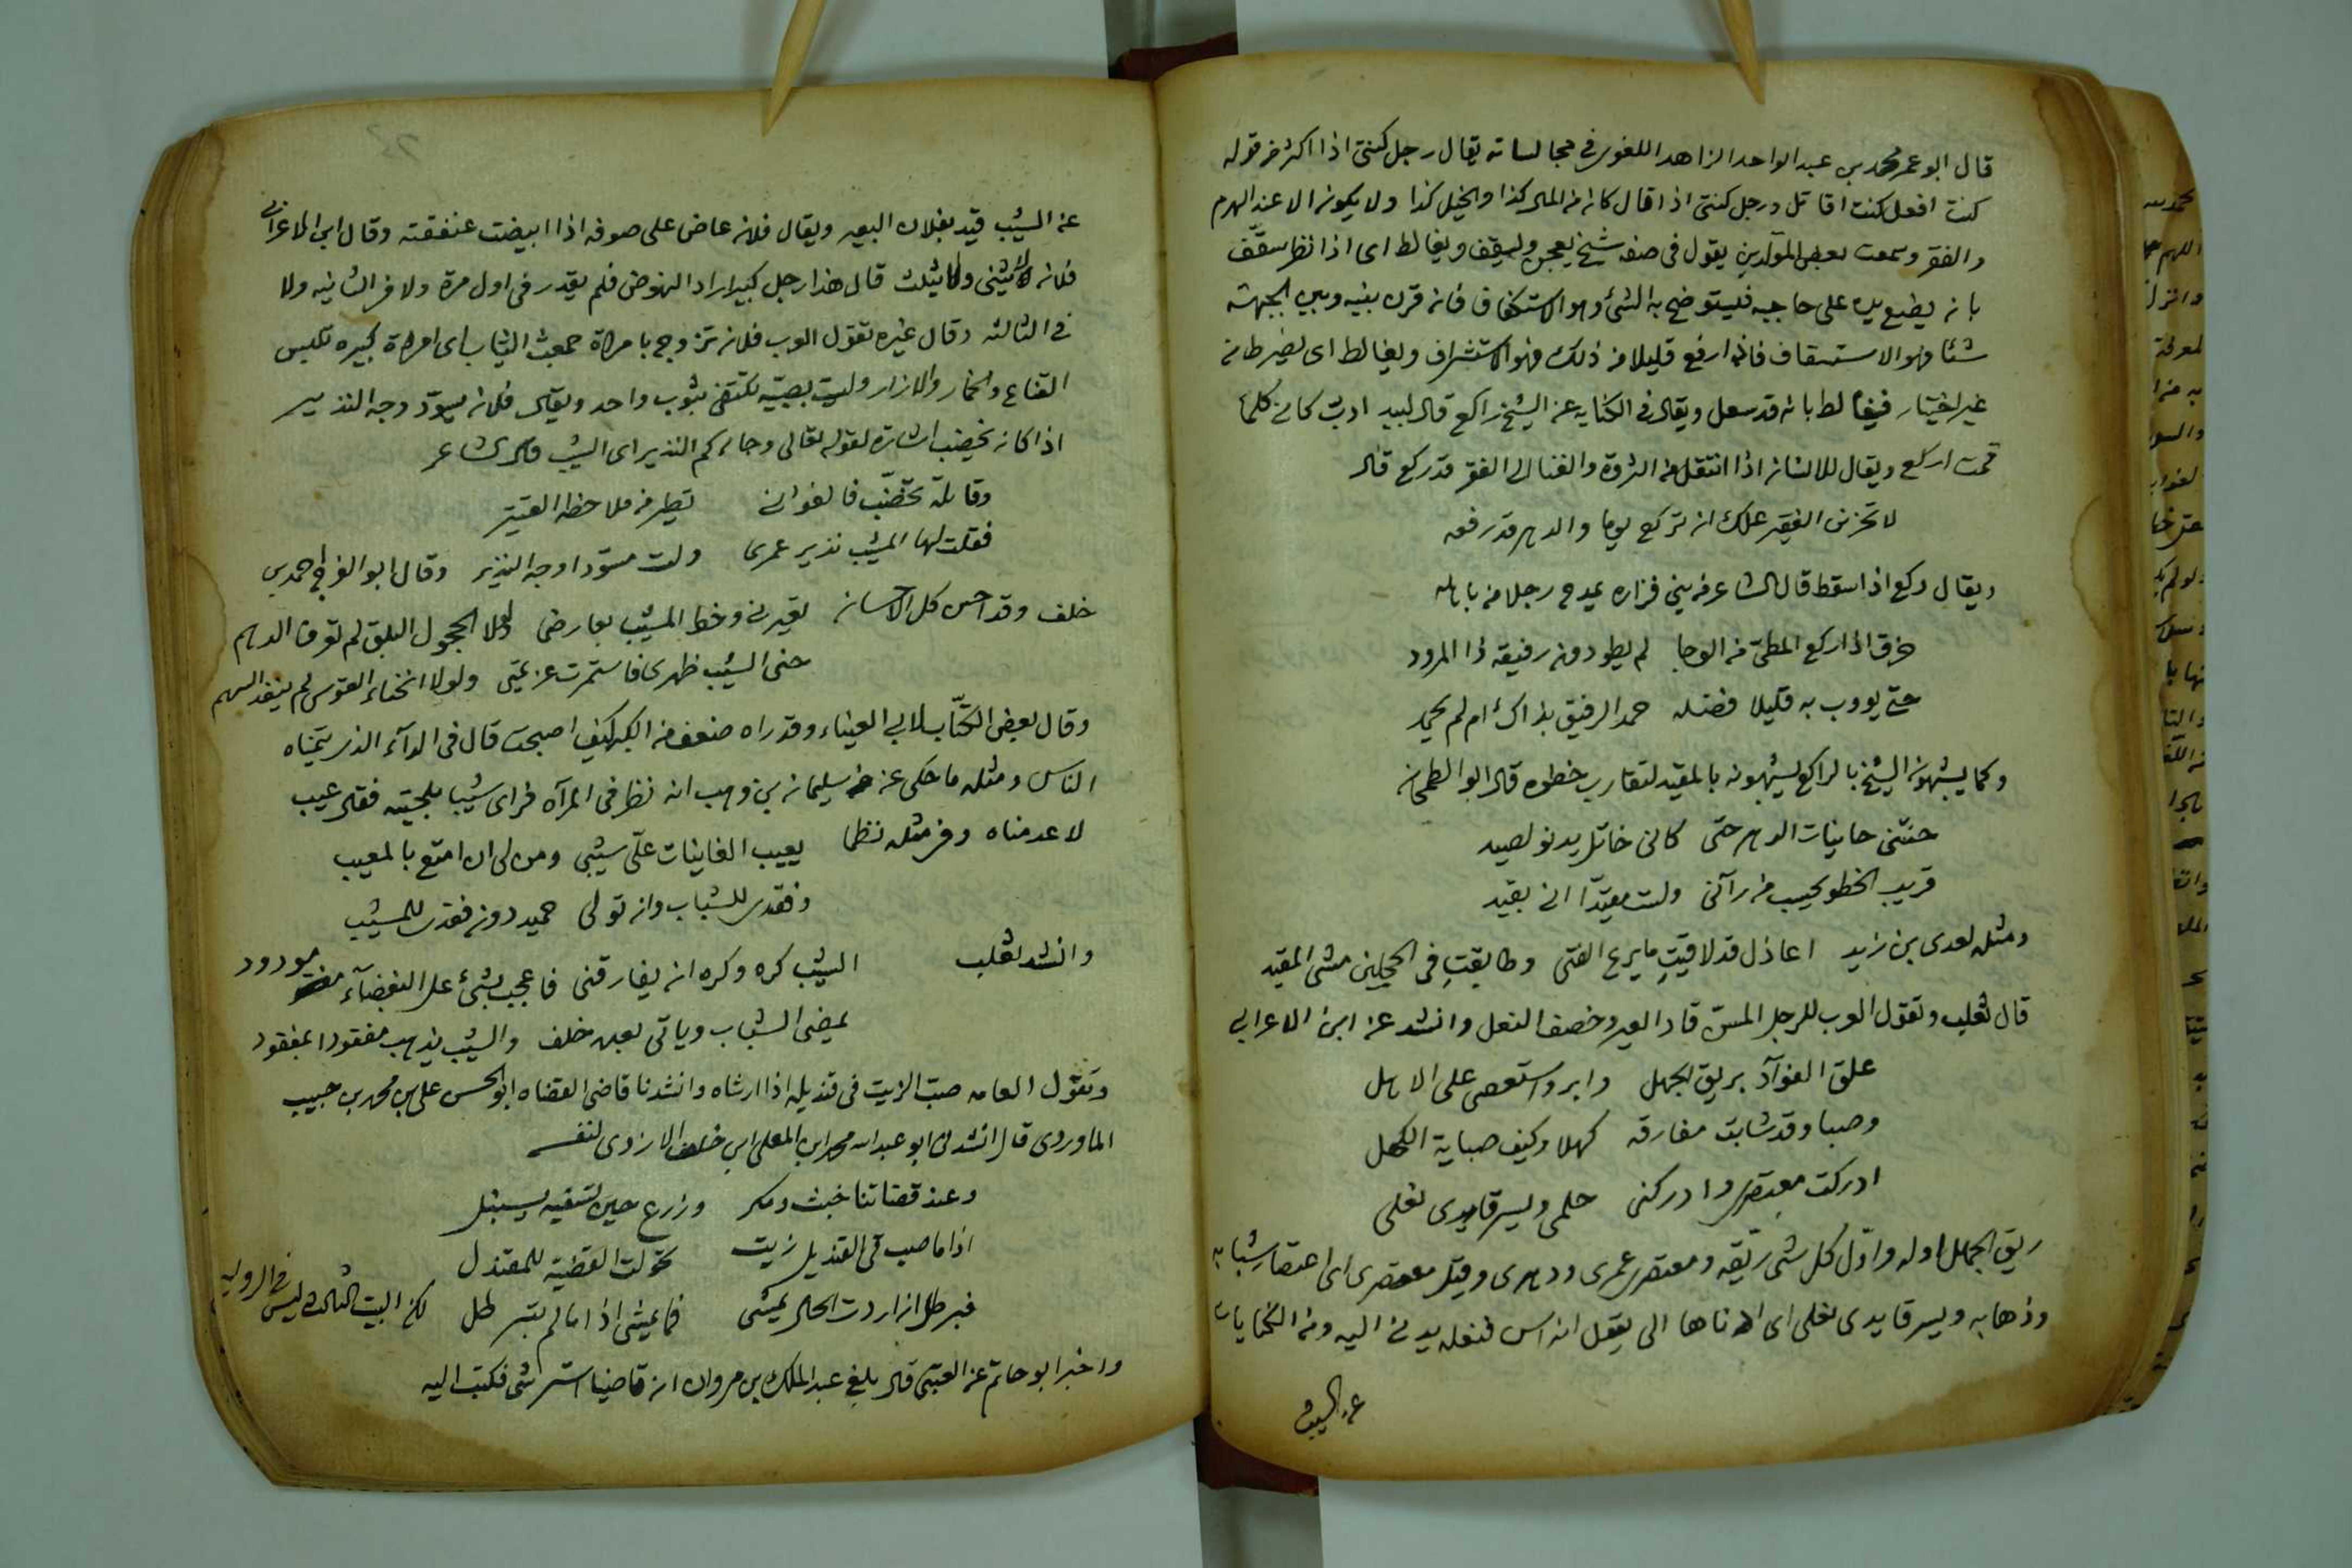 قال ابو عمر محمد بن عبد الواحد الزاهد اللغوى فى مجالساته يقال رجل كنتى اذا اكثر من قوله
كنت افعل كنت اقاتل ورجل كنتى اذا قال كان من المال كذا والخيل كذا ولا يكون الا عند الهرم
والفقر وسمعت بعض المولدين يقول فى صفه شيخ يعجن وليقف ويغالط اى اذا نظر سقّف
بانه يضع يده على حاجبه فليستوضح به الشئ وهو الاستكفاف فانه قرن بينه وبين الجبهة
شئا وهو الاستسقاف فانه ارفع قليلا من ذلك فهو الاستشراف ويغالط اى يضرط من
غير اختيار فيغالط بانه قد سعل ويقال فى الكنايه عن الشيخ راكع قال لبيد ادبّ كانى كلما
قمت اركع ويقال للانسان اذا انتقل من الثروة والغنا الى الفقر قد ركع قال
لا تحزن الفقير علك ان تركع يوما والدهر قد رفعه
ويقال ركع اذا سقط قال الشاعر من بنى فزاره يمدح رجلا من باهله
خرق اذا ركع المطى من الوجا لم يطو دون رفيقه ذا المزود
حتى يووب به قليلا فضله حمد الرفيق بذاك ام لم يحمد
وكما يشبهون الشيخ بالراكع يشبهونه بالمقيد لتقارب خطوه قال ابو الطمحان
حنتنى حانيات الدهر حتى كانى خاتل يدنو لصيد
قريب الخطو يحسب من رآنى ولست مقيدّا انى بقيد
ومثله لعدى بن زيد اعاذل قد لاقيتِ ما يزع الفتى وطابقتِ فى الحجلين مشى المقيد
قال ثعلب وتقول العرب للرجل المسنّ قاد العير وخصف النعل وانشد عن ابن الاعرابى
علق الفوآد بريق الجهل وابر واستعصى على الاهل
وصبا وقد شابت مفارقه كهلا وكيف صباية الكهل
ادركت معتصرى وادركنى حلمى ويسر قايدى نعلى
ريق الجهل اوله واوّل كل شى ريّقه ومعتصرى عمرى ودهرى وقيل معتصرى اى اعتصار شبابه
وذهابه ويسر قايدى نعلى اى ادناها الى يقول انه اسن فنعله يدنى اليه ومن الكنايات
عن الشيب
عن الشيب قيد بفلان البعير ويقال فلان عاض على صوفه اذا ابيضت عنفقته وقال ابن الاعرابى
فلان لا يثنى ولا يثلث قال هذا رجل كبير اراد النهوض فلم يقدر فى اول مرة ولا فى الثانيه ولا
فى الثالثه وقال غيره تقول العرب فلان تزوج بامراة جمعت الثياب اى امراة كبيره تلبس
القناع والخمار والازار وليست بصبيّه تكتفى بثوب واحد ويقال فلان يسوّد وجه النذير
اذا كان يخضب اشارة لقوله تعالى وجاءكم النذير اى الشيب قال الشاعر
وقايلة تخضّب فالغوانى تطير من ملاحظه القتير
فقلت لها المشيب نذير عمرى ولست مسوّدا وجه النذير وقال ابو الفرج احمد بن
خلف وقد احسن كل الاحسان تعيرنى وخط المشيب بعارضى ولولا الحجول البلق لم تعرف الدهم
حنى الشيب ظهرى فاستمرت عزيمتى ولولا انحناء القوس لم ينفذ السهم
وقال بعض الكتّاب لابى العيناء وقد راه ضعف من الكبر كيف اصبحت قال فى الدآء الذى يتمناه
الناس ومثله ما حكى عن سليمان بن وهب انه نظر فى المرآه فراى شيبا بلحيته فقال عيب
لا عدمناه ومن مثله نظما يعيب الغانيات علّى شيبى ومن لى ان امتع بالمعيب
وفقدى للشباب وان تولى حميد دون فقدى للمشيب
وانشد ثعلب الشيب كره وكره ان يفارقنى فاعجب بشئ على البغضآء مودود
يمضى الشباب وياتى بعده خلف والشيب يذهب مفقودا بمفقود
وتقول العامه صبّ الزيت فى قنديله اذا ارشاه وانشدنا قاضى القضاه ابو الحسن على بن محمد بن حبيب
الماوردى قال انشدنى ابو عبد الله محمد ابن المعلى ابن خلف الازدى لنفسه
وعند قضاتنا خبث ومكر وزرع حين تسقيه يسنبل
اذا ما صب فى القنديل زيت تحولت القضية للمقندل
فبرطل ان اردت الحال يمشى فما يمشى اذا ما لم تبرطل لكن البيت الثالث ليس فى الروايه
واخبر ابو حاتم عن العتبى قال بلغ عبد الملك بن مروان ان قاضيا استرشى فكتب اليه